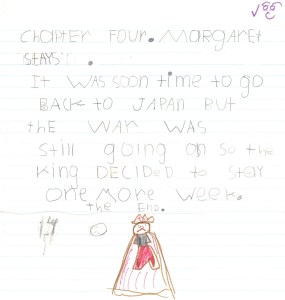 Chapter Four. Margaret
Stays.
It was soon time to go
Back to Japan But
the war was
still going on so the
king Decided to stay
one more week.
the End.